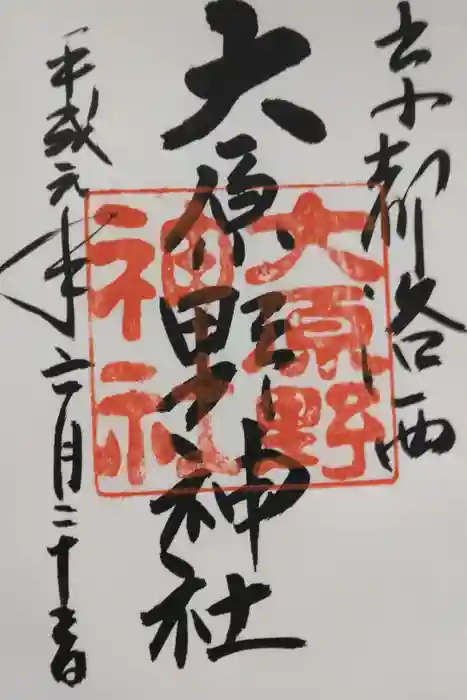 京都洛西
大原野神社
平成元年六月二十日
大原野
神社